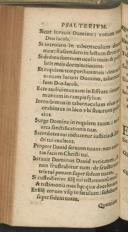 PSALTERIVM.
Sicut iurauit Domino: votum vouit
Deo Iacob.
Si introiero in tabernaculum domus
meæ: si ascendero in lectum
Si dedero somnum oculis meis: & palpebris
meis dormitationem.
Et requiem temporibus meis: donec
inueniam locum Domino, tabernaculum
Deo Iacob.
Ecce audiuimus eam in Effrata: inuenimus
eam in campis syluæ.
Introibimus in tabernaculum eius: adorabimus
in loco vbi steterunt pedes
eius.
Surge Domine in requiem tuam: tu & arca
sanctificationis tuæ.
Sacerdotes tui induantur iustitiam: &
sancti tui exultent.
Propter Dauid seruum tuum: non auertas
faciem Christi tui.
Iurauit Dominus Dauid veritatem, & non
frustrabitur eum: de fructu ventris
tui ponam super sedem tuam.
Si custodierint filij tui testamentum meum:
& testimonia mea hæc quæ docebo eos.
Et filij eorum vsque in sæculum: sedebunt
super sedem tuam.